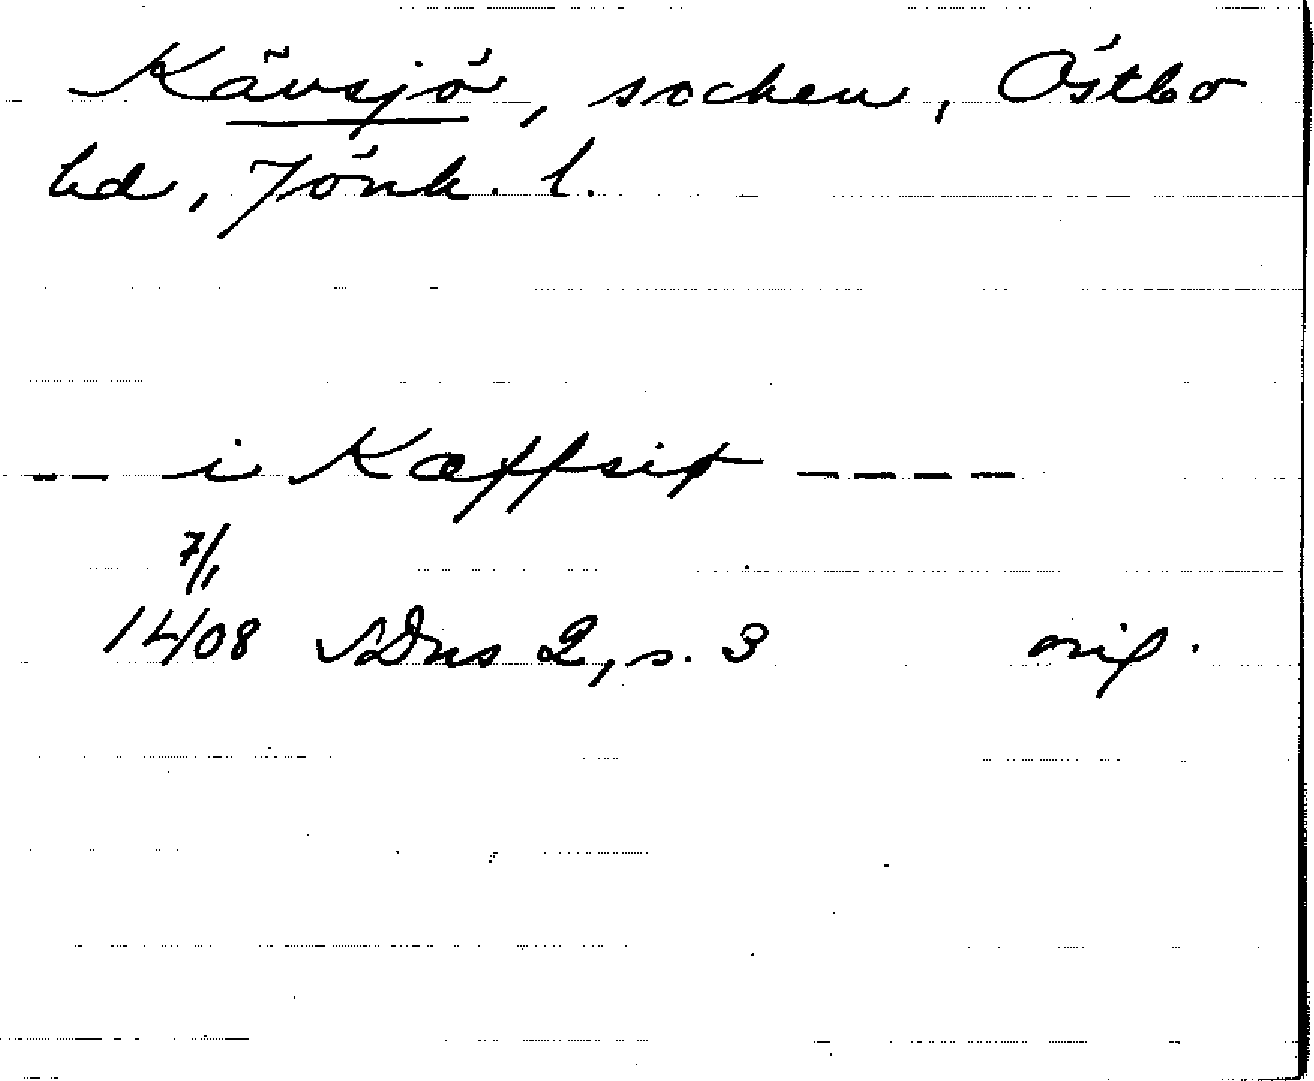 Kävsjö, socken, Östbo
hd, Jönk. l.
-- i Kæffsiø ----
7/1
14/08 SDns 2, s. 3 orig.